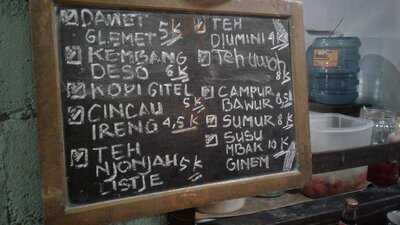 DAWET
GLEMET 5K
KEMBANG
DESO 6K
KOPI GITEL 5K
CINCAU
IRENG 4,5K
TEH
NJONJAH 5K
LISTJE
TEH
DIUMINI 4K
Teh 8K
CAMPUR
BAWUR 6,5K
SUMUR 8K
SUSU
MBAK 10K
GINEM